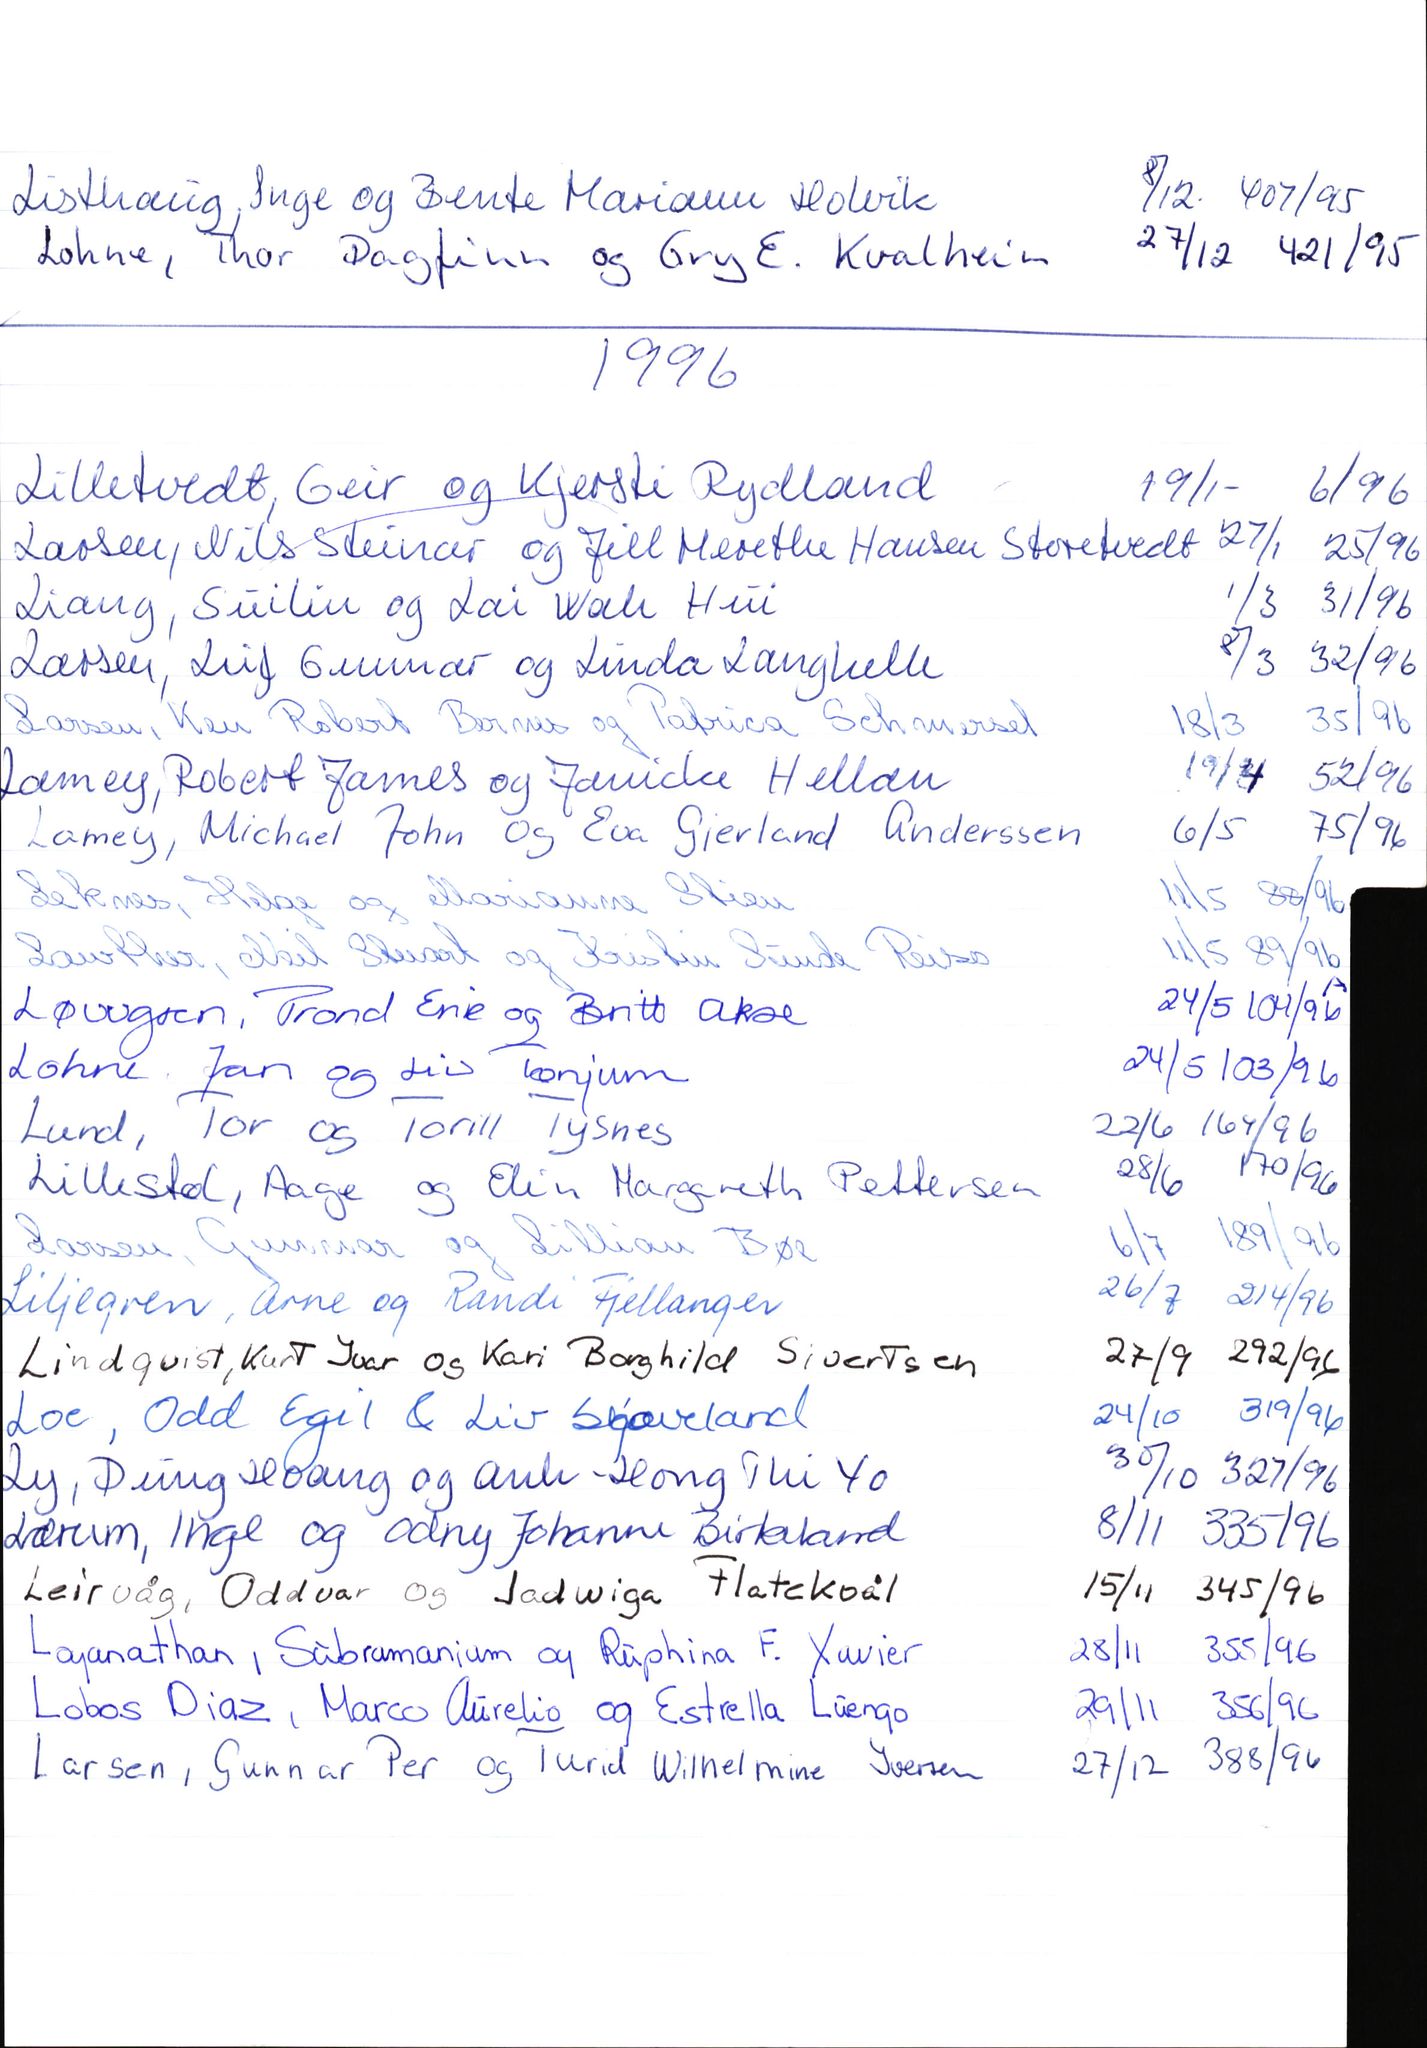 Listhaug, Inge og Bente Mariann Holvik 8/12. 407/95
Lohne, Thor Dagfinn og Gry E. Kvalheim 27/12 421/95
1996
Lilletvedt, Geir og Kjersti Rydland 19/1- 6/96
Larsen, Nils Steinar og Jill Merethe Hansen Storetvedt 27/1 25/96
Liang, Suilin og Lai Wah Hui 1/3 31/96
Larsen, Leif Gunnar og Linda Langhelle 8/3 32/96
Larsen, Ken Robert Bernes og Patrica Schmersel 18/3 35/96
Lamey, Robert James og Janicke Hellan 19/4 52/96
Lamey, Michael John og Eva Gjerland Anderssen 6/5 75/96
Leknes, Helge og Marianne Stien 11/5 88/96
Lawther, Neil Stuart og Kristin Sunde 11/5 89/96
Løvvgren, Trond Erik og Britt Akse 24/5 104/96
Lohne Jan og Liv Tonjum 24/5 103/96
Lund, Tor og Torill Tysnes 22/6 164/96
Lillestøl, Aage og Elin Margareth Pettersen 28/6 170/96
Larsen, Gunnar og Lillian Bøe 6/7 189/96
Liljegren, Arne og Randi Fjellanger 26/7 214/96
Lindqvist, Kurt Ivar og Kari Borghild Sivertsen 27/9 292/96
Loe, Odd Egil & Liv 24/10 319/96
Ly, Dung Hoang og Anh-Hong Thi Yo 30/10 327/96
Lærum, Inge og Odny Johanne Birkeland 8/11 335/96
Leirvåg, Oddvar og Jadwiga Flatekvål 15/11 345/96
Loganathan, Subramanium og Ruphina F. Xavier 28/11 355/96
Lobos Diaz, Marco Aurelio og Estrella Luengo 29/11 356/96
Larsen, Gunnar Per og Turid Wilhelmine Iversen 27/12 388/96